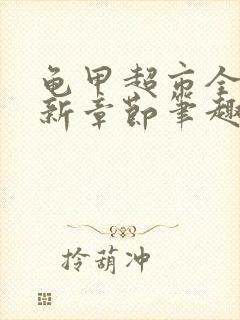 龟甲超市全
新章节笔趣
拎葫冲